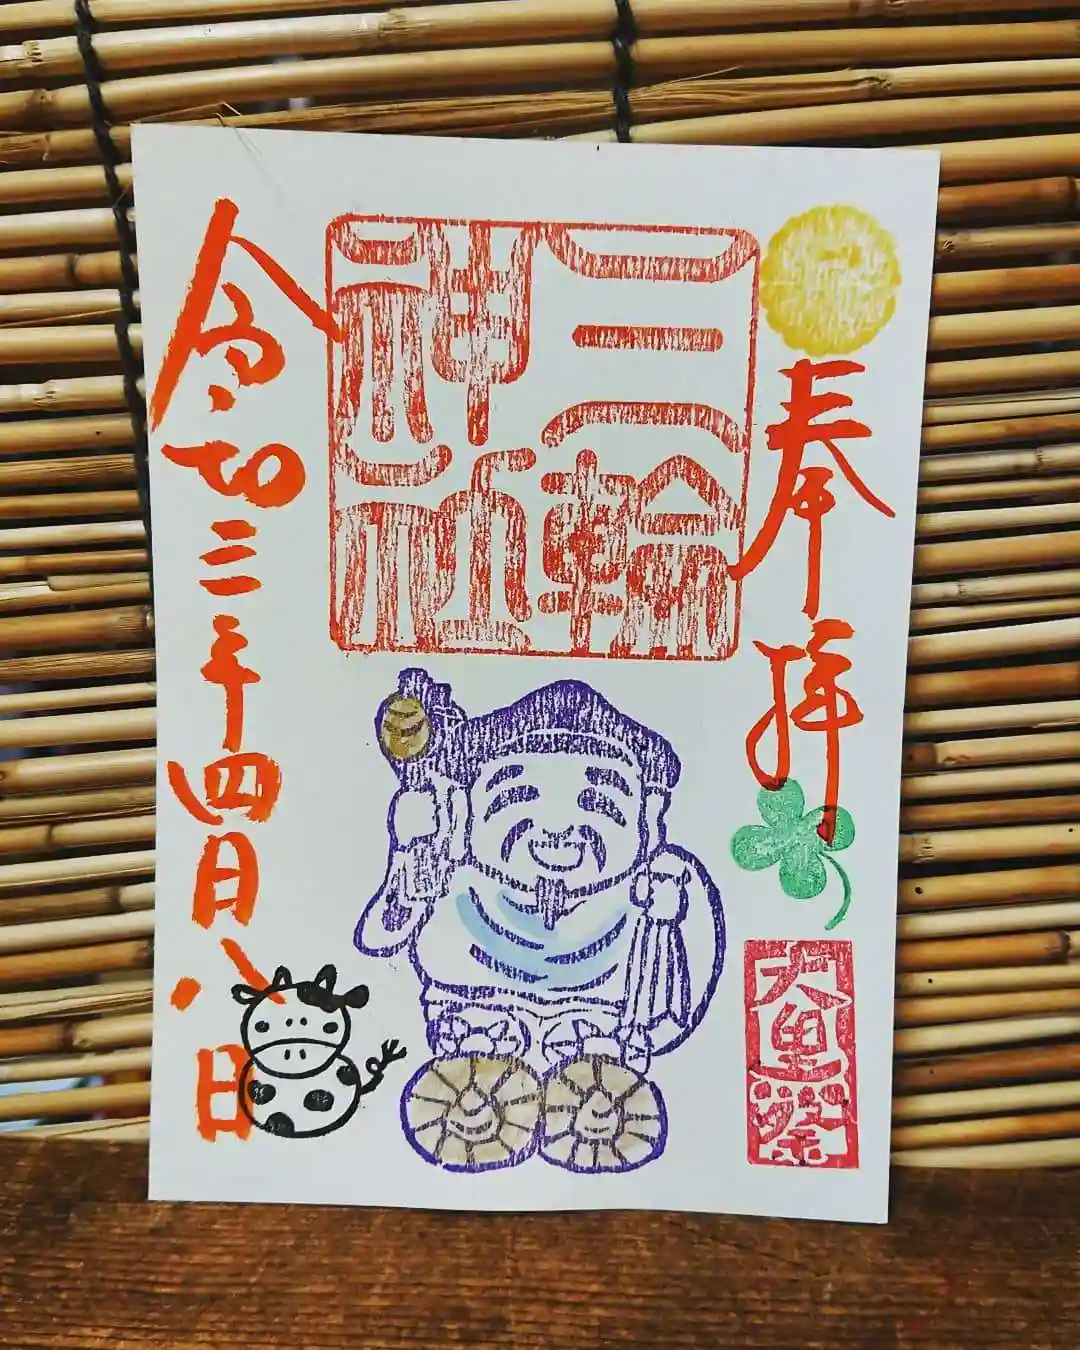 奉拝
大黒祭
三輪
神社
令和三年四月八日